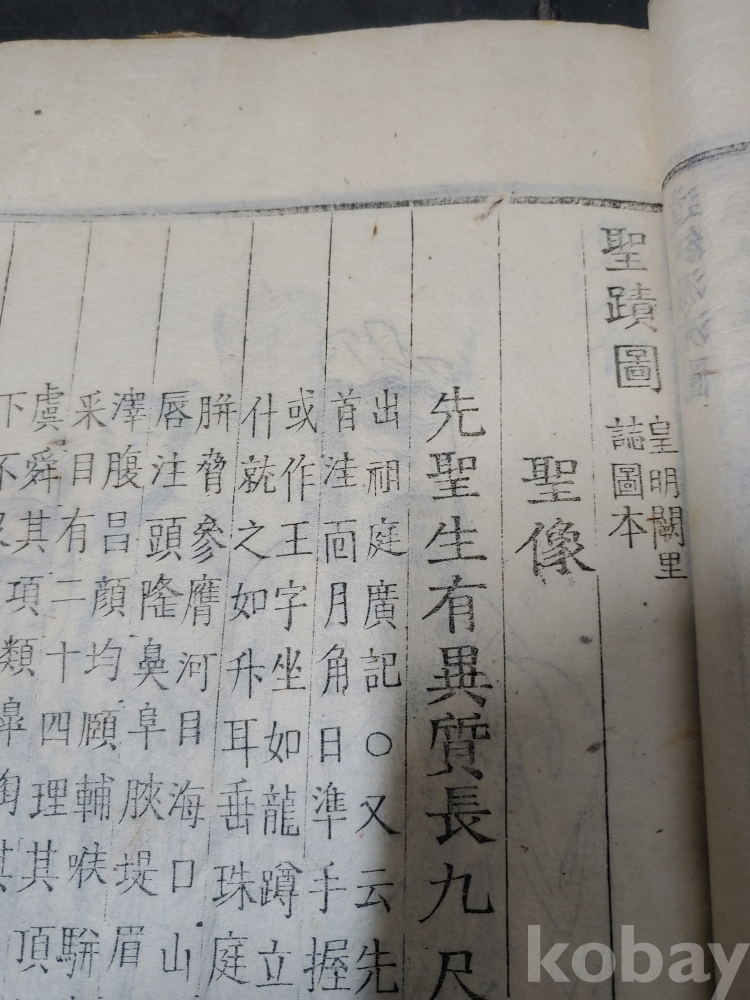 聖蹟圖
皇明闕里
誌圖本
聖像
先聖生有異質長九尺
出祖庭廣記○又云先
首洼面月角日準手握
或作王字坐如龍蹲立
什就之如升耳垂珠庭
胼脅參膺河目海口山
唇注頭隆鼻阜脥堤眉
澤腹昌顔均頤輔喉駢
采目有二十四理其頂
虞舜其項類皐陶其
下不
kobay